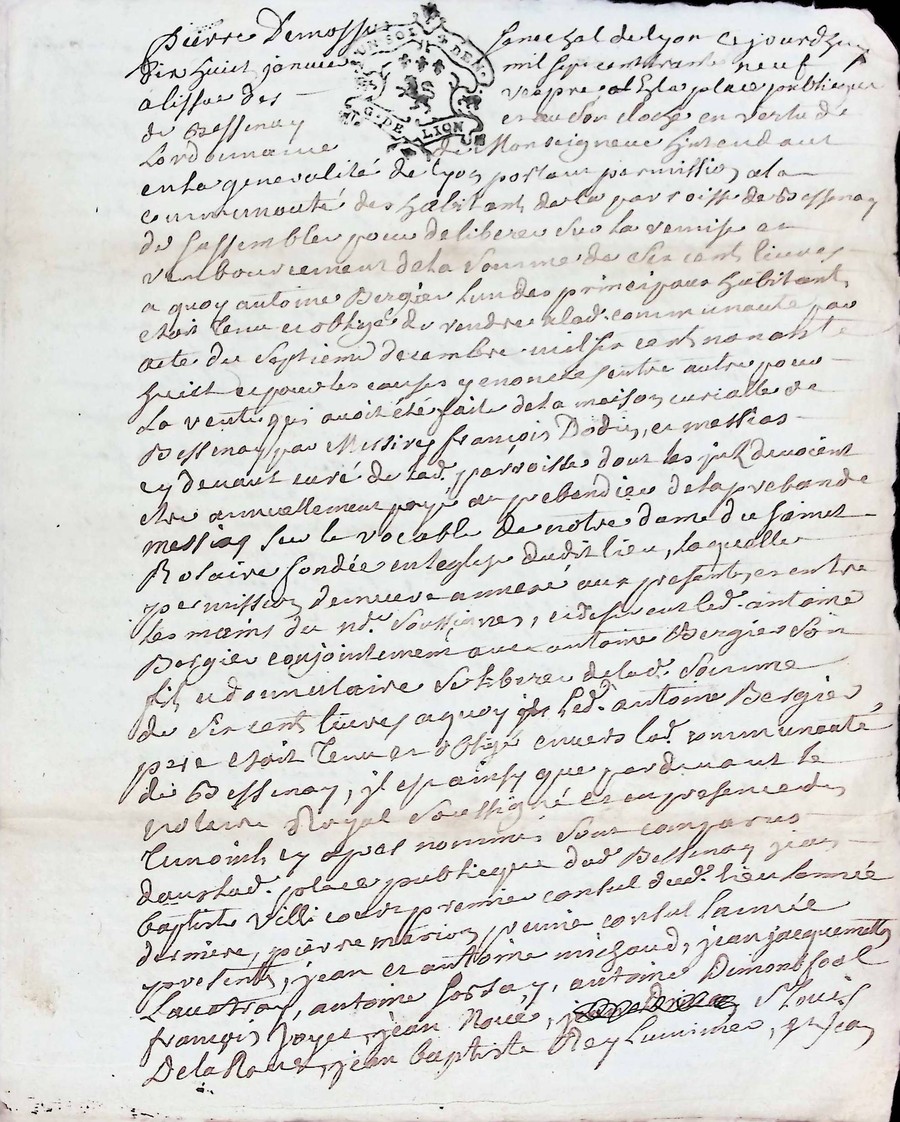 pierre Demosse Senechal de lyon ce jourdhuy
dix huict janvier mil sept cent trante neuf
alissue des vespre et Ala place publicque
de Bessenay et au Son cloche en vertu de
Lordonnance de Monseigneur Lintendant
en la generalité de Lyon portant permission ala
communauté des habitants de la parroisse de Bessenay
de sassembler pour deliberer Sur la remise et
rembourcement de la Somme de Six cent livres
a quoy antoine Bergier lun des principaux habitants
etoit Tenu et obligé de rendre a lad. communauté par
acte du Septieme decembre mil Six cent nonante
huict et pour les causes y enoncées entre autre pour
La vente qui avoit été faite de la maison curialle de
Bessenay par Messires françois Dodin, et messias
cy devant curé de lad. parroisse dont les devoient
etre annuellement payé au prebendier de la prebande
messias Sur le vocable de notre dame du Sainct
Rosaire fondée en leglise dudit lieu, laquelle
permission demeure annexé aux presentes entre
les mains du nre. Soussignes, et desirant led. antoine
Bergier conjointement avec antoine Bergier Son
fils et donnataire Se liberer de lad. Somme
de Six cent livres a quoy led. antoine Bergier
pere etoit Tenu et obligé envers lad. communauté
de Bessenay, il est ainsy que pardevant le
notaire Royal Soussigné et en presence des
Temoints cy apres nommés Sont comparus
dans lad. place publicque dud. Bessenay jean
baptiste Villicour premier consul dud. lieu lannée
derniere, pierre marion premie consul lannée
presente, jean et antoine migaud, jean jacquemetton
Lautray, antoine Sossay, antoine Dimontfool
françois Joyet, jean Roué, St Louis
De la Roue, jean baptiste Rey Luminier,
UN SOL
G. DE LION